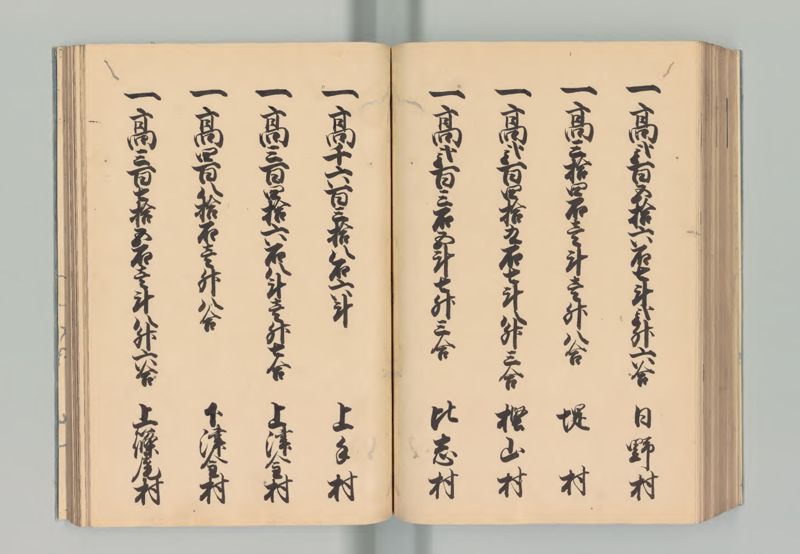 一高弐百五拾六石七斗弐升六合 日野村
一高三拾四石壱斗壱升八合 堤村
一高弐百四拾九石七斗八升三合 樫山村
一高弐百三石五斗七升三合 比志村
一高千六百三拾八石六斗 上手村
一高三百四拾六石八斗壱升七合 上津金村
一高四百八拾石壱升八合 下津金村
一高三百 拾五石壱斗八升六合 上篠尾村